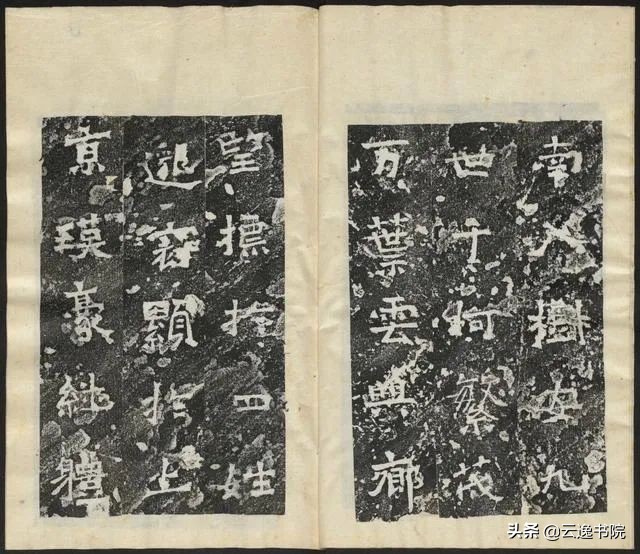 南入樹安九
世千柯繁茂
万葉雲興鄉
望標扵四姓
邈冠顯扵上
京瑛豪継體
头条 @云逸书院